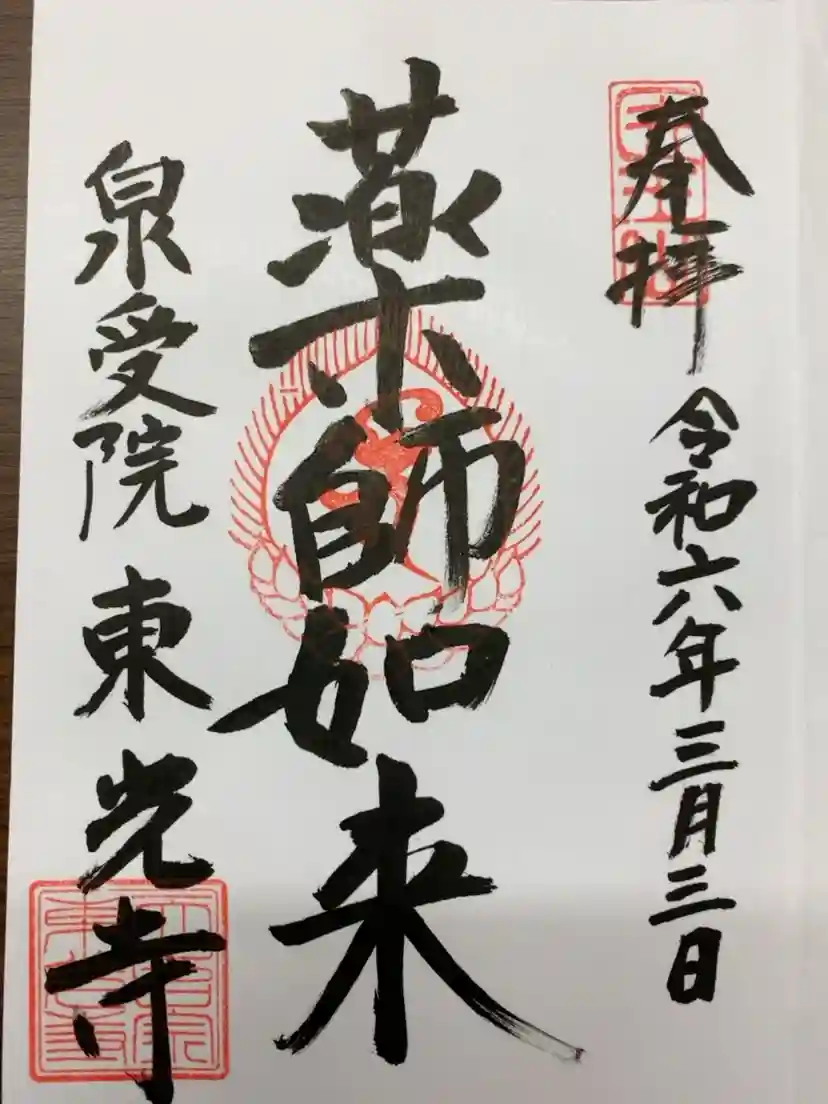 奉拝 令和六年三月三日
薬師如来
泉受院 東光寺